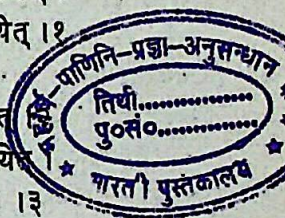 येत् ।१
पाणिनि-प्रज्ञा-अनुसन्धान
तिथी..................
पु०सं०..................
त
।३
★ भारती पुस्तकालय ★